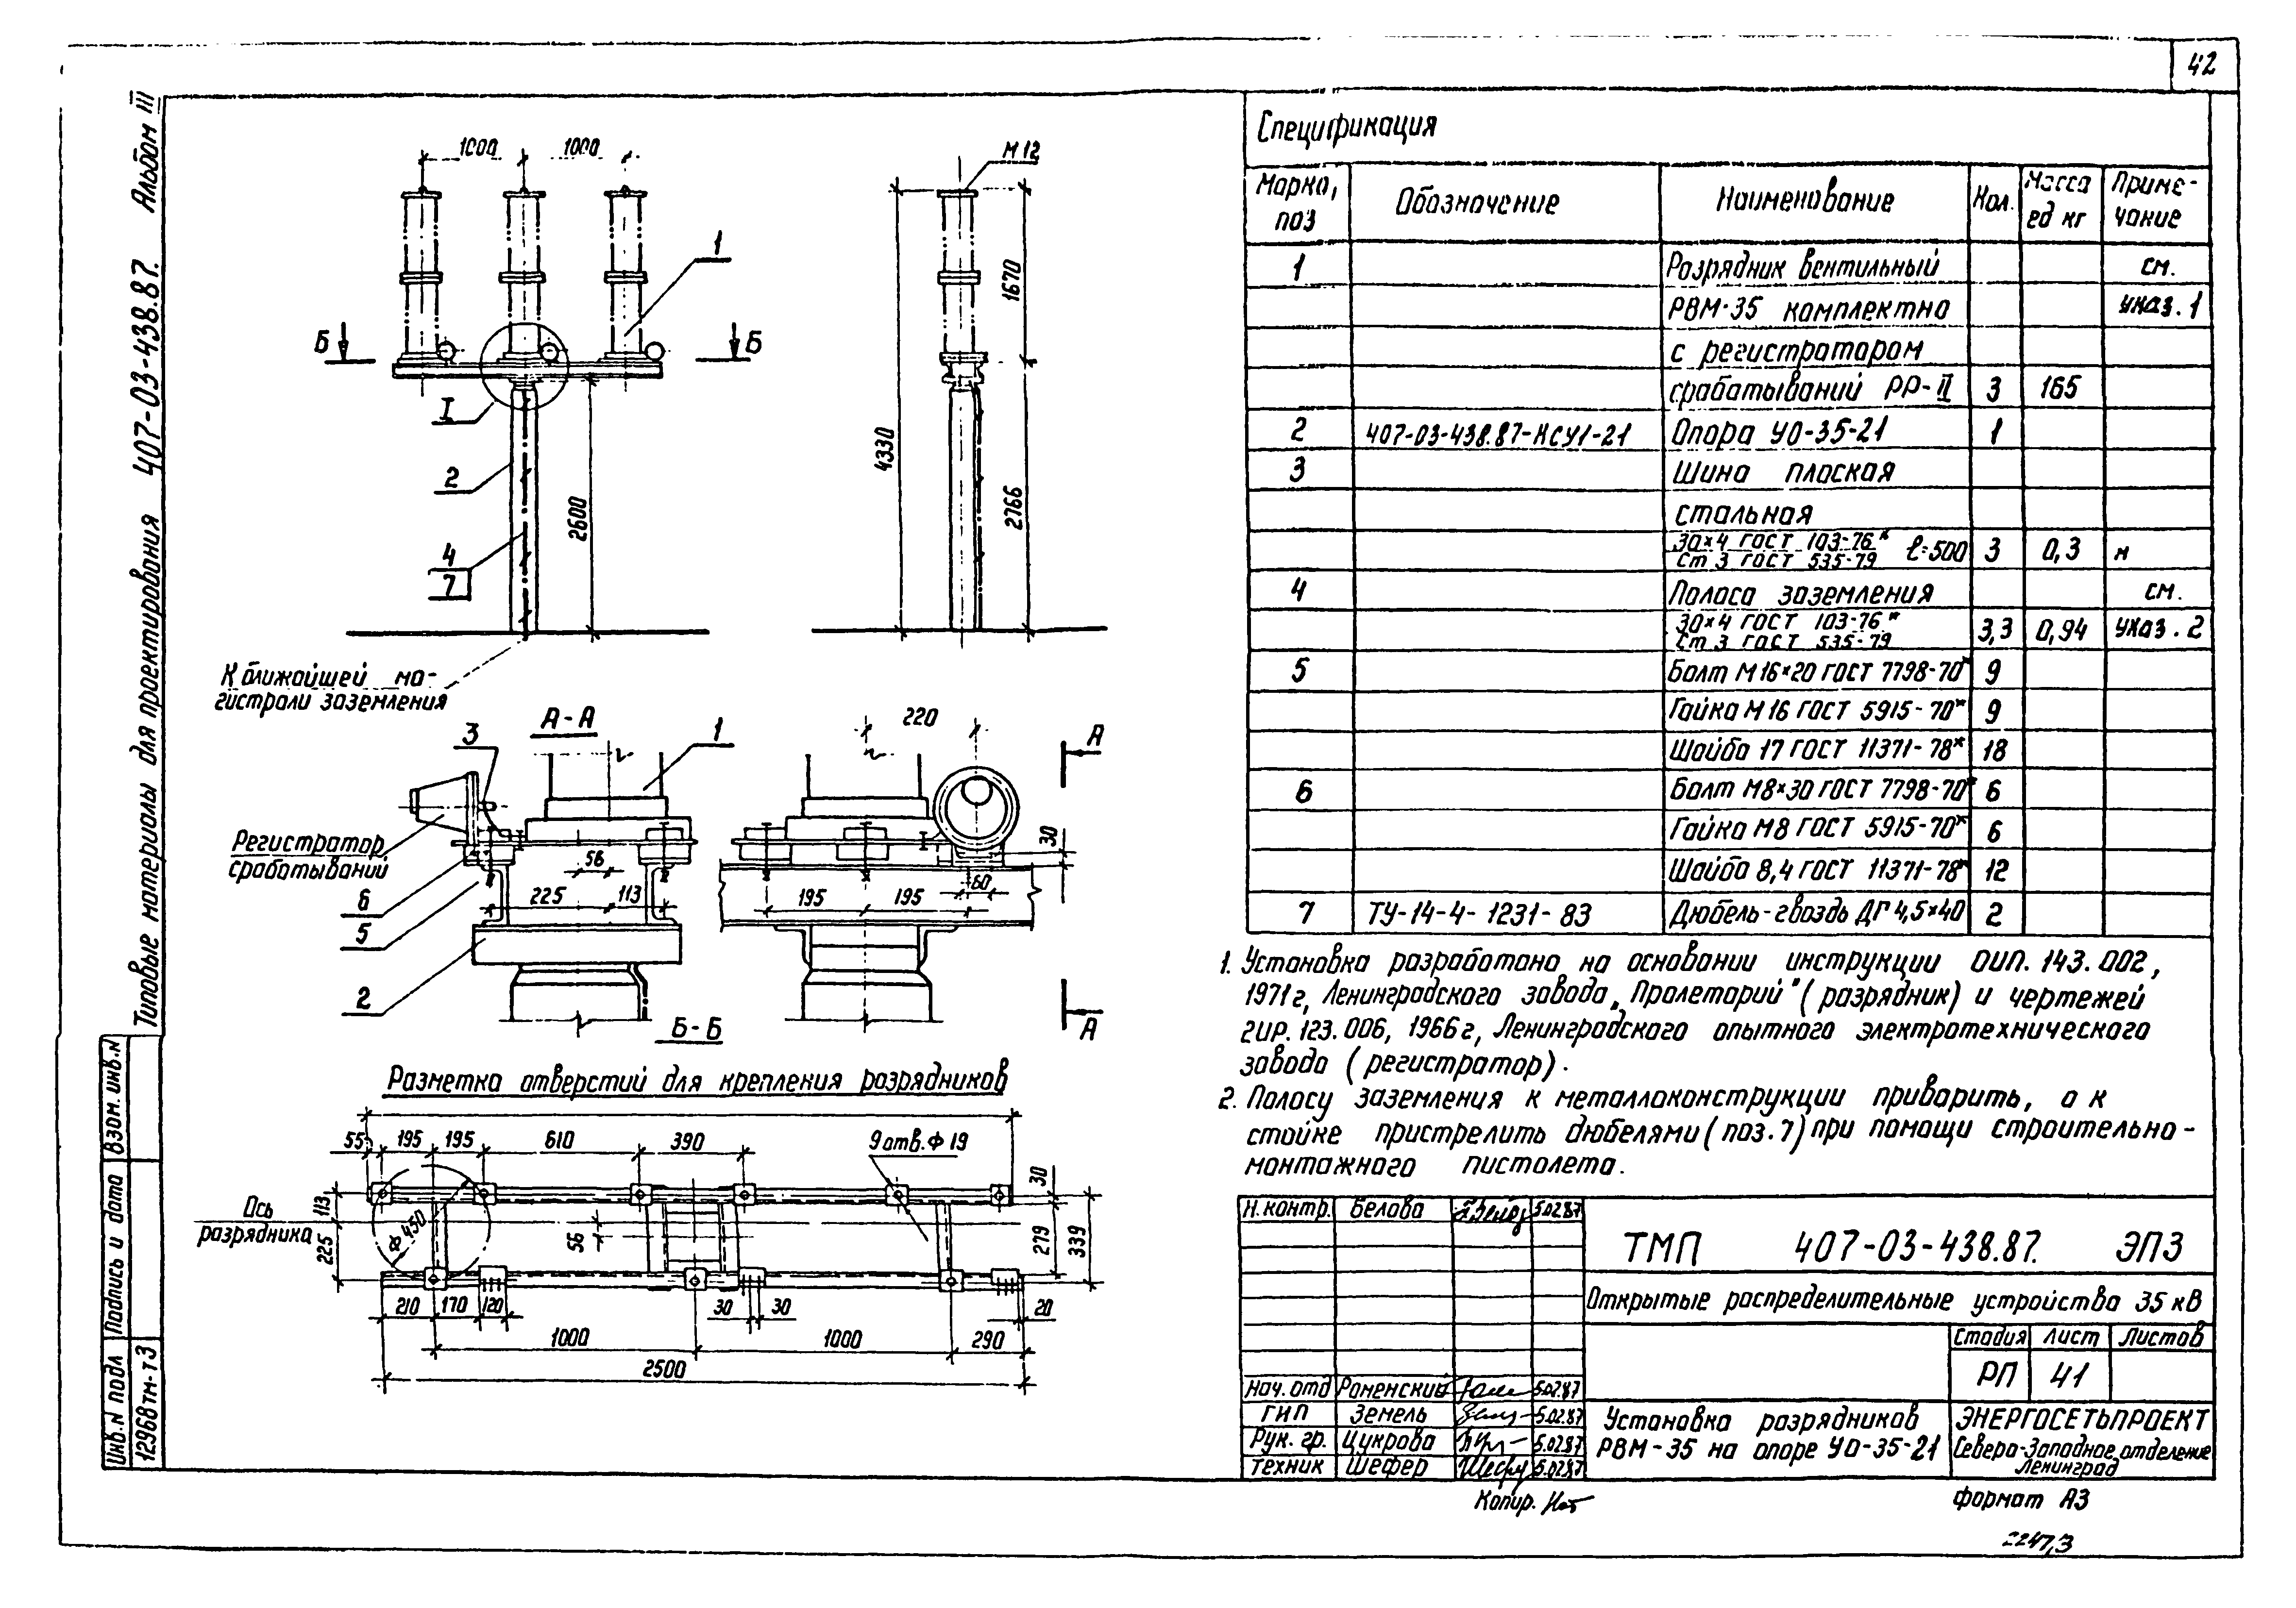 42
Типовые материалы для проектирования 407-03-438.87. Альбом III
1000 1000
М12
1
Б Б
I
2
4
7
2600
4330
1670
2766
К ближайшей ма-
гистрали заземления
А-А
220
3
1
А
Регистратор
срабатываний
56
225
113
30
60
195 195
6
5
2
А
Б-Б
Разметка отверстий для крепления разрядников
55 195 195 610 390
9 отв. ф 19
30
Ось
разрядника
113
225
ф 450
56
279
339
210 170 120 30 30 20
1000 1000 290
2500
Спецификация
Марка, поз Обозначение Наименование Кол. Масса ед кг Приме-чание
1 Разрядник вентильный см.
РВМ-35 комплектно указ. 1
с регистратором
срабатываний РР-II 3 165
2 407-03-438.87-КСУ1-21 Опора УО-35-21 1
3 Шина плоская
стальная
30×4 ГОСТ 103-76*
Ст 3 ГОСТ 535-79 ℓ=500 3 0,3 м
4 Полоса заземления см.
30×4 ГОСТ 103-76*
Ст 3 ГОСТ 535-79 3,3 0,94 указ. 2
5 Болт М16×20 ГОСТ 7798-70* 9
Гайка М16 ГОСТ 5915-70* 9
Шайба 17 ГОСТ 11371-78* 18
6 Болт М8×30 ГОСТ 7798-70* 6
Гайка М8 ГОСТ 5915-70* 6
Шайба 8,4 ГОСТ 11371-78* 12
7 ТУ-14-4-1231-83 Дюбель-гвоздь ДГ 4,5×40 2
1. Установка разработана на основании инструкции ОИП. 143. 002,
1971г, Ленинградского завода „Пролетарий" (разрядник) и чертежей
2ИР. 123. 006, 1966г, Ленинградского опытного электротехнического
завода (регистратор).
2. Полосу заземления к металлоконструкции приварить, а к
стойке пристрелить дюбелями (поз. 7) при помощи строительно-
монтажного пистолета.
Н. контр. Белова 5.02.87
ТМП 407-03-438.87. ЭПЗ
Открытые распределительные устройства 35 кВ
Стадия Лист Листов
РП 41
Нач. отд Раменский 5.02.87
ГИП Земель 5.02.87
Рук. гр. Цукрова 5.02.87
техник Шефер 5.02.87
Установка разрядников
РВМ-35 на опоре УО-35-21
ЭНЕРГОСЕТЬПРОЕКТ
Северо-Западное отделение
Ленинград
Копир.
Формат А3
2247,3
Инв. N подл Подпись и дата Взам. инв. N
12968тм-т3